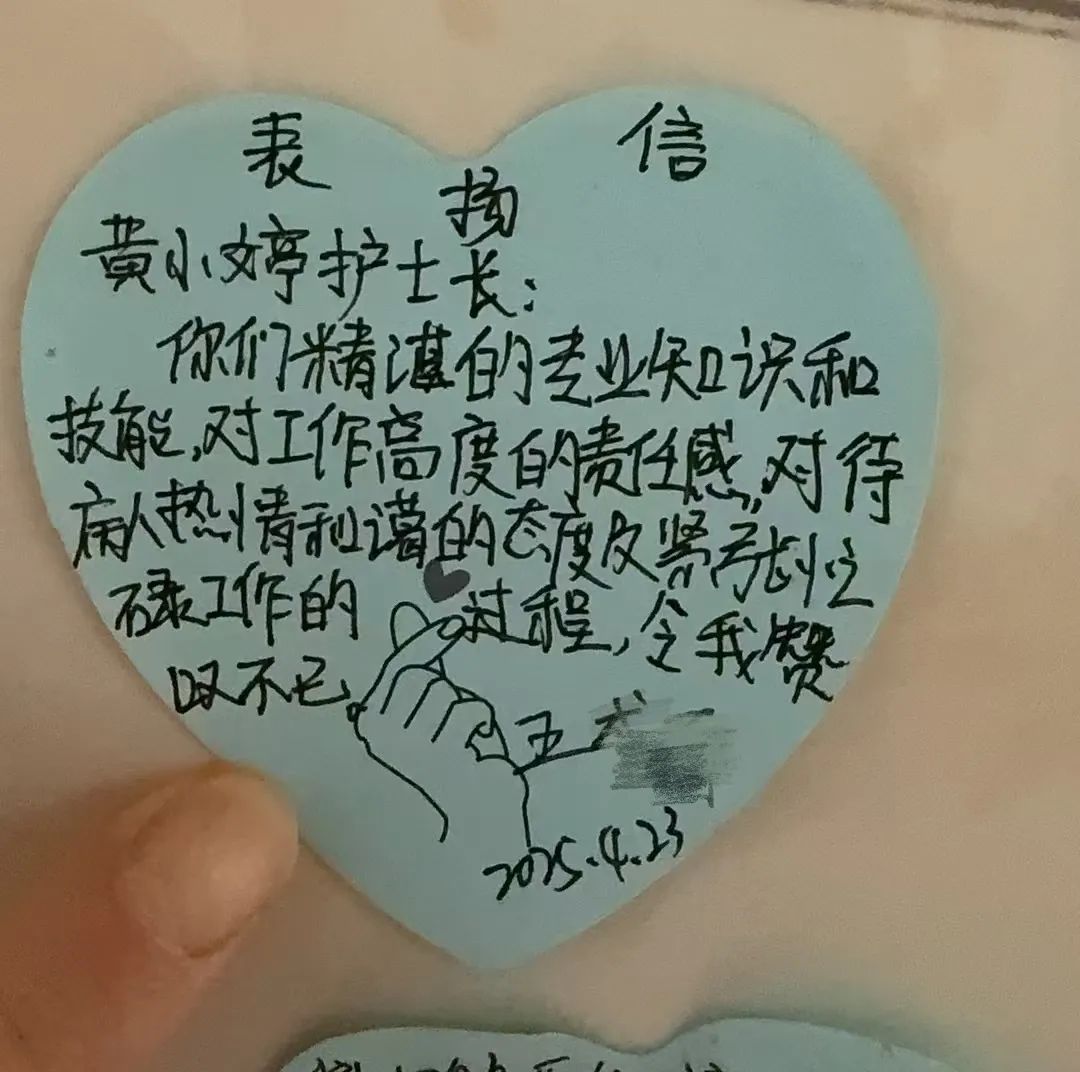 表扬信
黄小婷护士长：
你们精湛的专业知识和
技能,对工作高度的责任感,对待
病人热情和谐的态度及紧而忙
碌工作的过程,令我赞
叹不已
王
2025.4.23